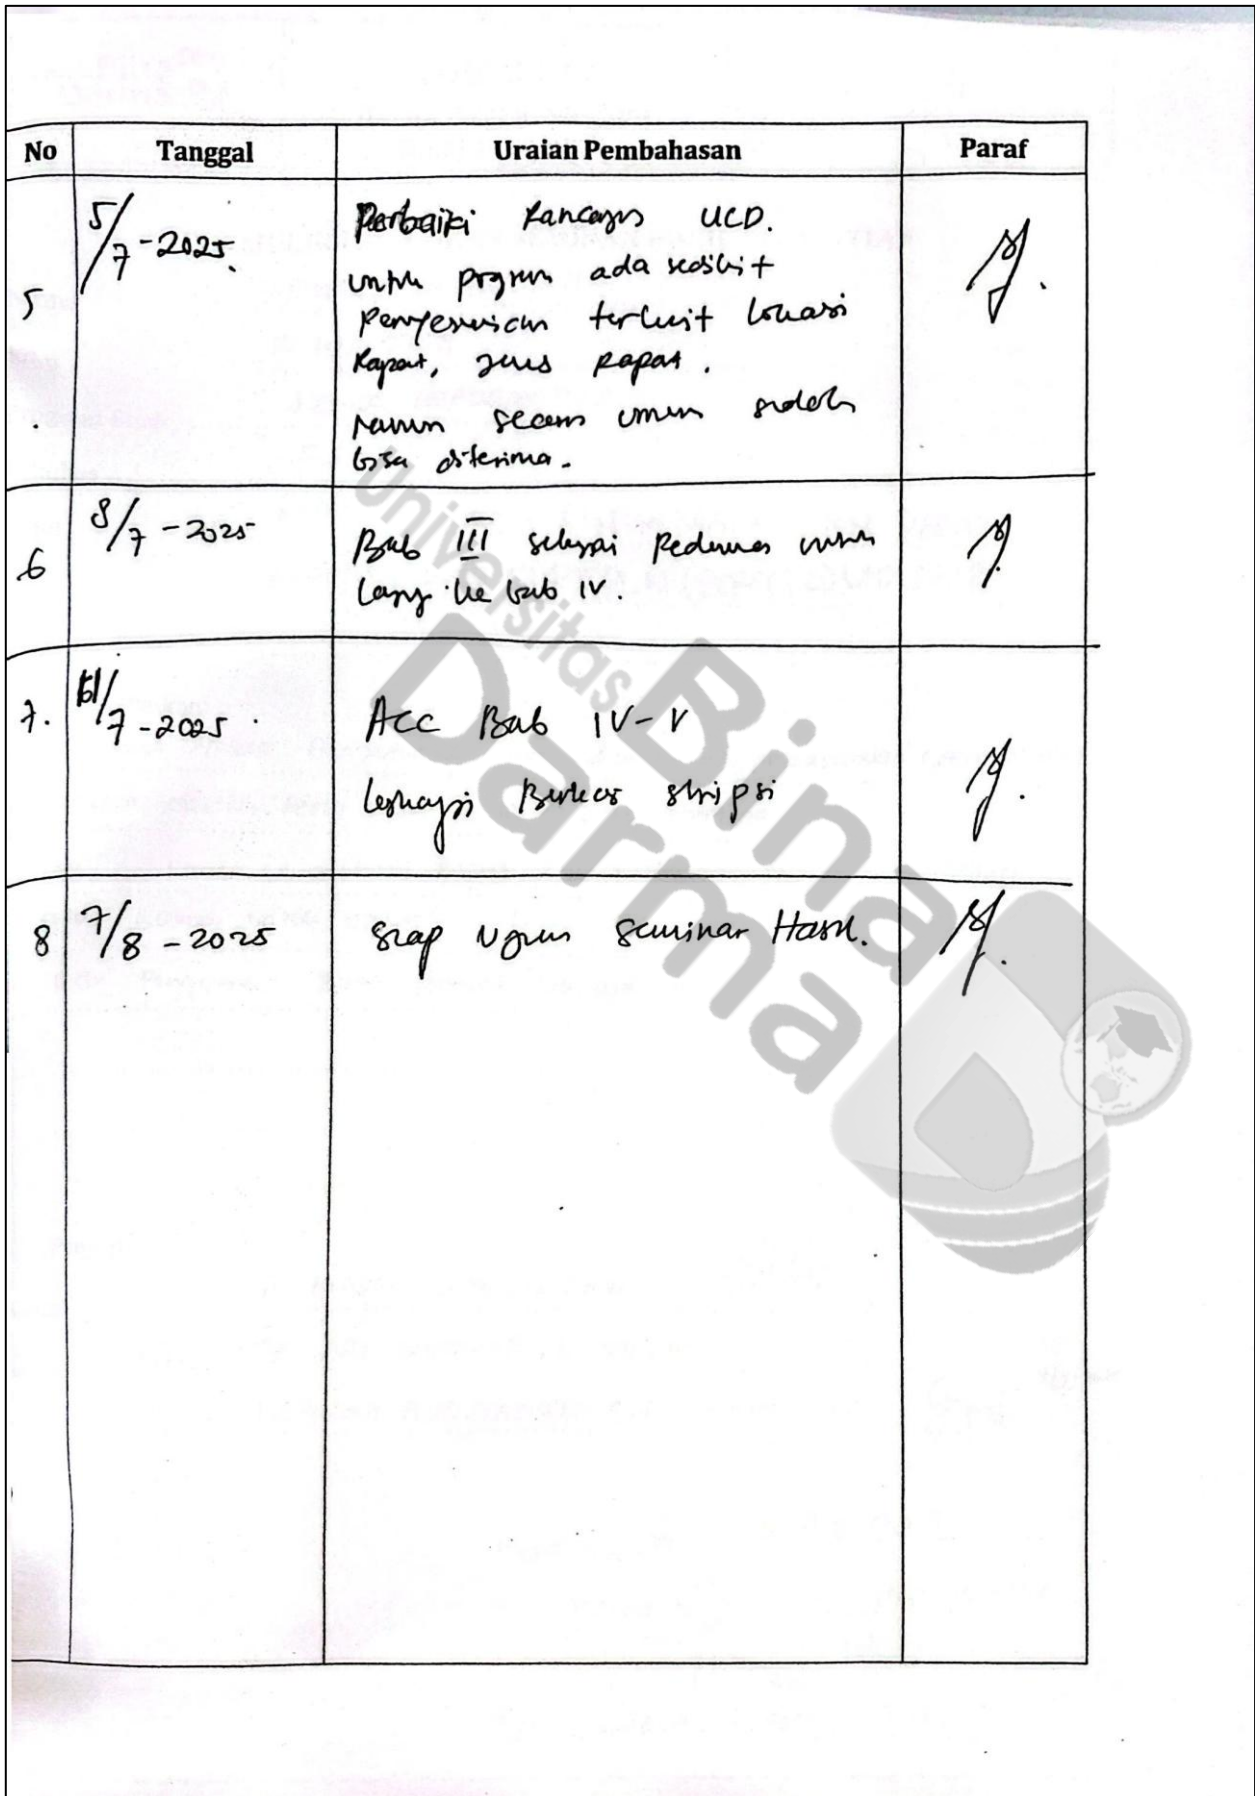 No Tanggal Uraian Pembahasan Paraf
5 5/7-2025. Perbaiki Rancangn UCD.
untuk progrm ada sedikit
Penyesuaian terkait Lokasi
Rapat, jenis Rapat.
Namun secara umum sudah
bisa diterima.
6 8/7-2025 Bab III sebagai Pedoman untuk
lanj. ke bab IV.
7. /7-2025. Acc Bab IV-V
Lengkapi Berkas skripsi
8 7/8-2025 siap Ujian Seminar Hasil.
Universitas
Bina
Darma